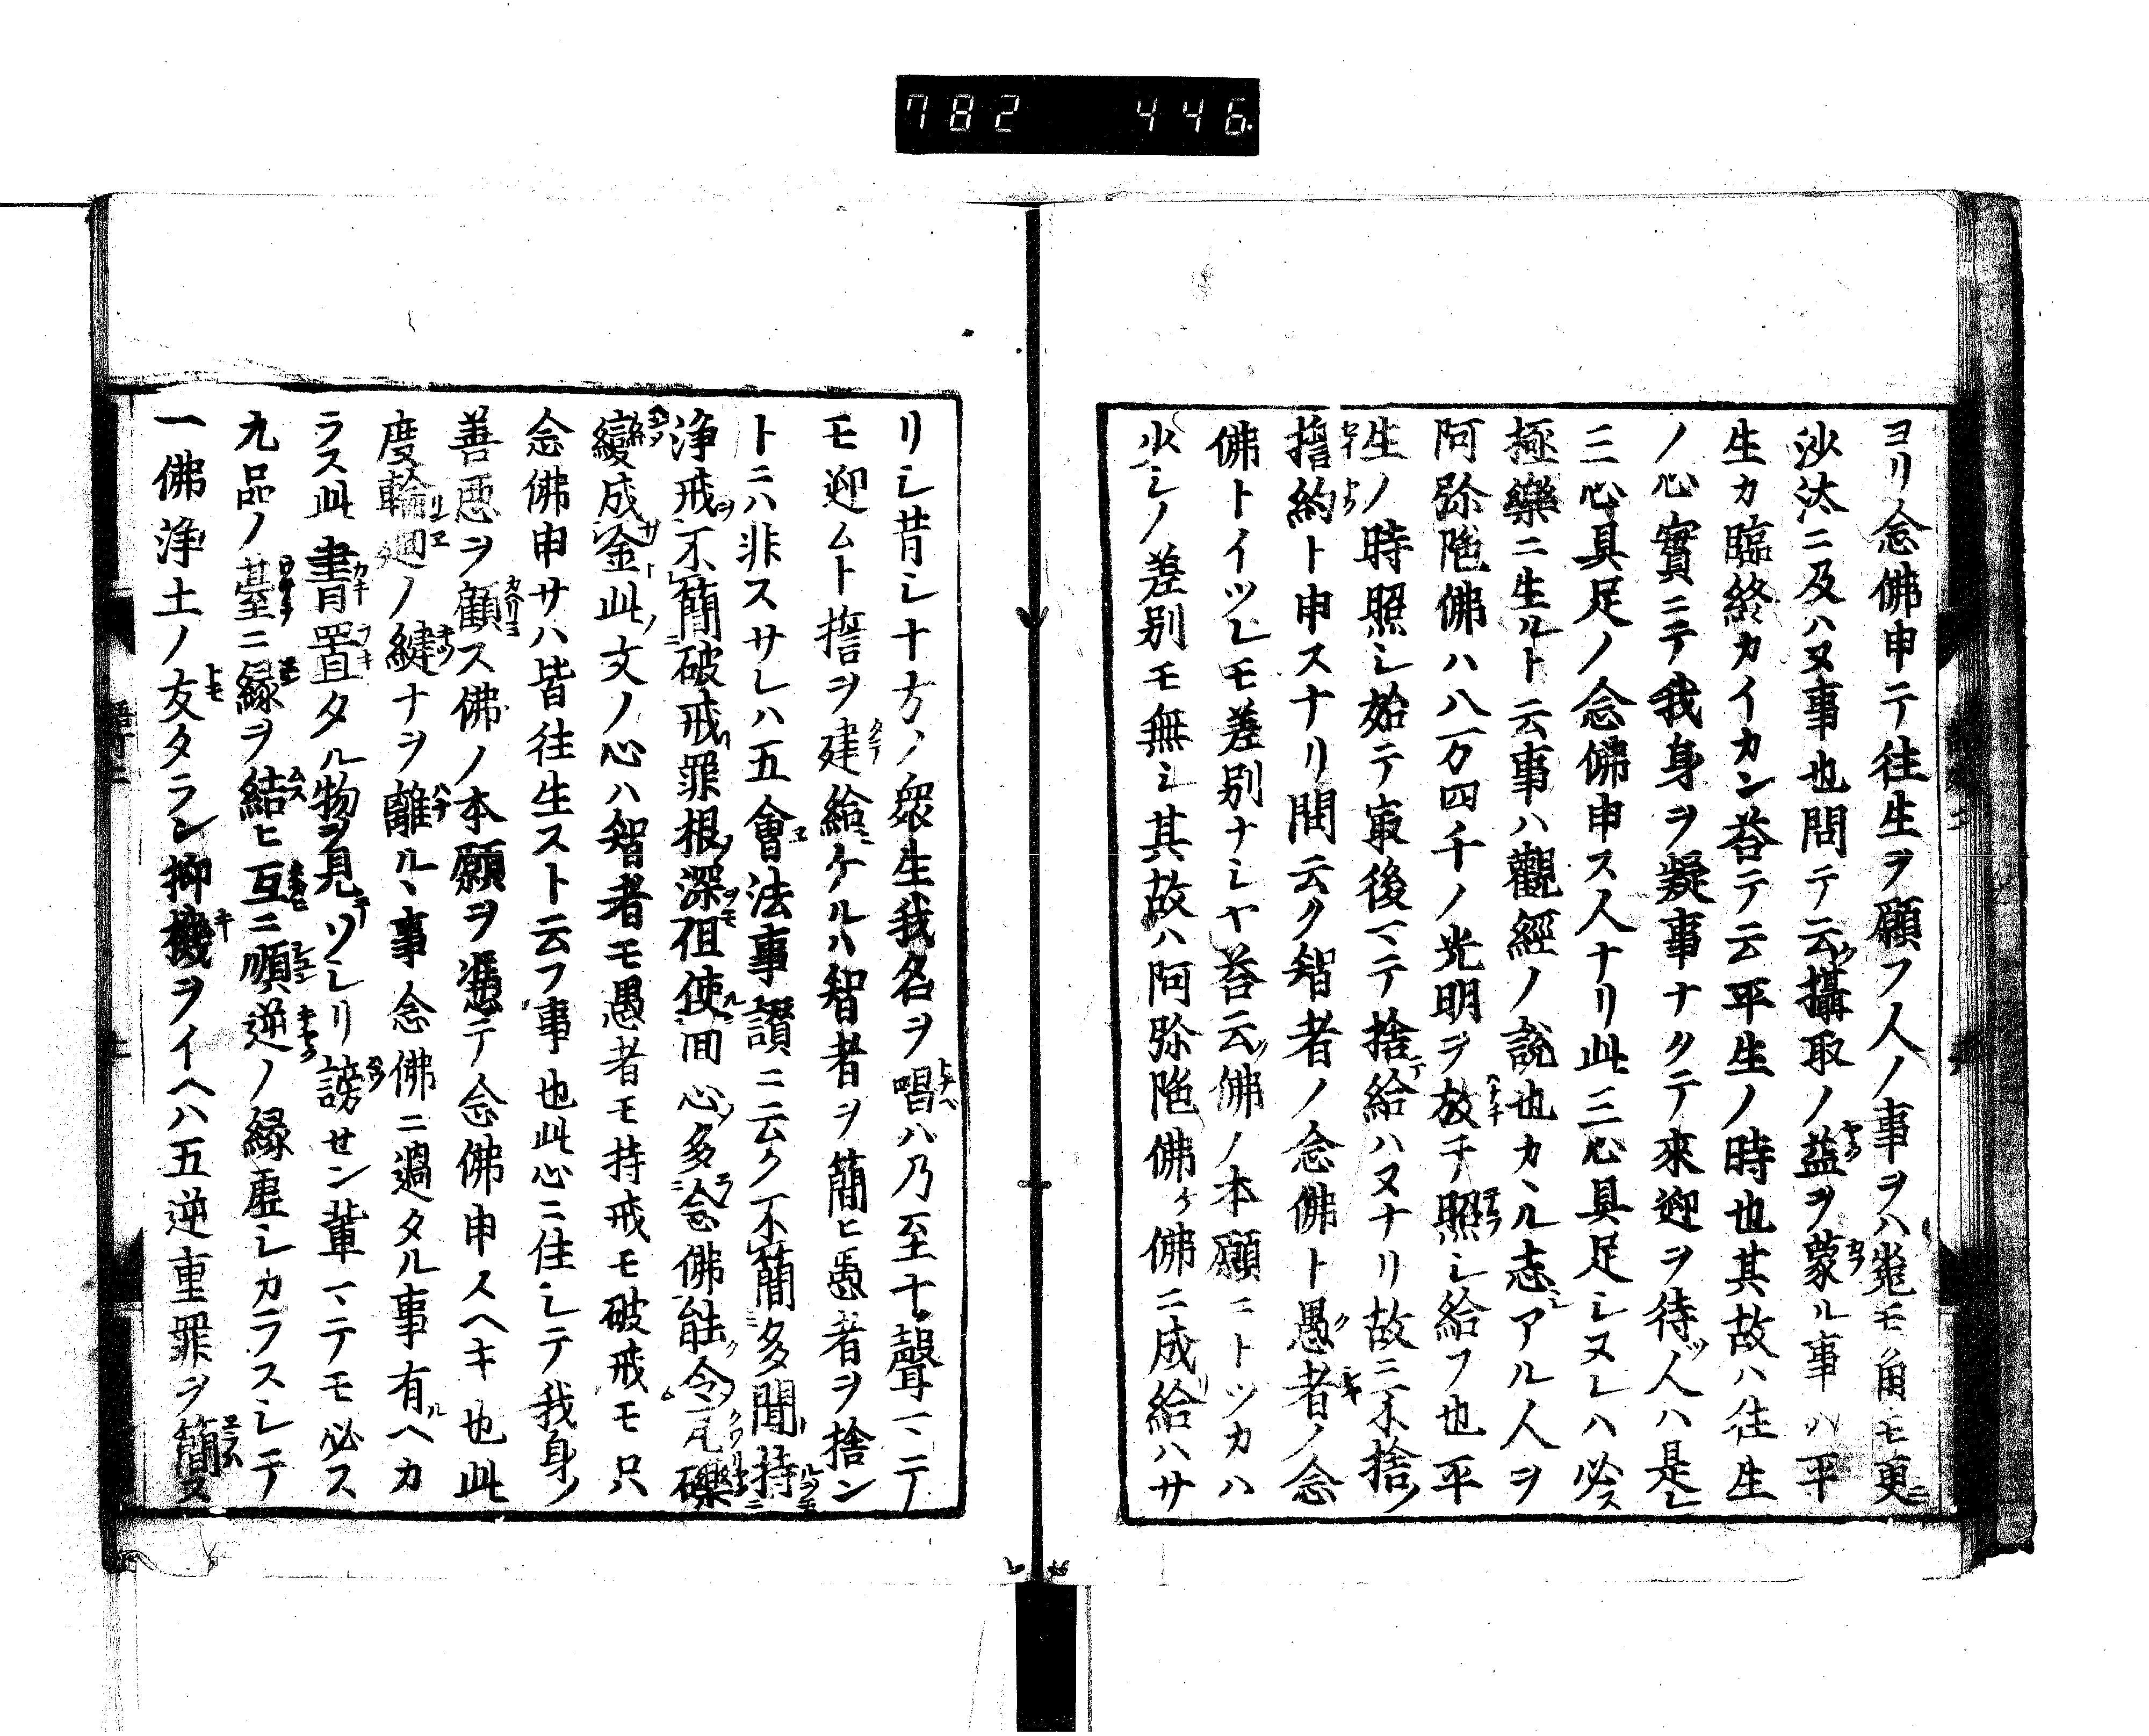 782 446
ヨリ念佛申テ往生ヲ願フ人ノ事ヲハ菟モ角モ更ニ
沙汰ニ及ハヌ事也問テ云攝取ノ益ヲ蒙ル事ハ平
生カ臨終カイカン荅テ云平生ノ時也其故ハ往生
ノ心實ニテ我身ヲ疑事ナクテ來迎ヲ待ツ人ハ是レ
三心具足ノ念佛申ス人ナリ此三心具足シヌレハ必ス
極樂ニ生ルト云事ハ觀經ノ說也カヽル志アル人ヲ
阿弥陁佛ハ八万四千ノ光明ヲ放チ照シ給フ也平
生ノ時照シ始テ㝡後マテ捨給ハヌナリ故ニ不捨ノ
誓約ト申スナリ問云ク智者ノ念佛ト愚者ノ念
佛トイツレモ差別ナシヤ荅云佛ノ本願ニトツカハ
少シノ差別モ無シ其故ハ阿弥陁佛ケ佛ニ成給ハサ
リシ昔シ十方ノ衆生我名ヲ唱ハ乃至十聲マテ
モ迎ムト誓ヲ建給ケルハ智者ヲ簡ヒ愚者ヲ捨ン
トニハ非スサレハ五會法事讃ニ云ク不簡多聞持
淨戒不簡破戒罪根深徂使回心多念佛能令瓦礫
變成金此文ノ心ハ智者モ愚者モ持戒モ破戒モ只
念佛申サハ皆往生スト云フ事也此心ニ住シテ我身ノ
善惡ヲ顧ス佛ノ本願ヲ憑テ念佛申スヘキ也此
度輪廻ノ紲ナヲ離ルヽ事念佛ニ過タル事有ヘカ
ラス此書置タル物ヲ見ソシリ謗セン輩マテモ必ス
九品ノ臺ニ縁ヲ結ヒ互ニ順逆ノ縁虛シカラスシテ
一佛淨土ノ友タラン抑機ヲイヘハ五逆重罪ヲ簡ス